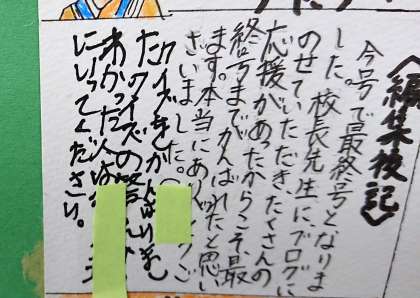 〈編集後記〉
今号で最終号となりま
した。校長先生に、ブログに
のせていただき、たくさんの
応援があったからこそ、最
終号までがんばれたと思い
ます。本当にありがとうご
ざいました。
クイズをがんばりまし
た クイズの答え
わかった人は
にいってください。